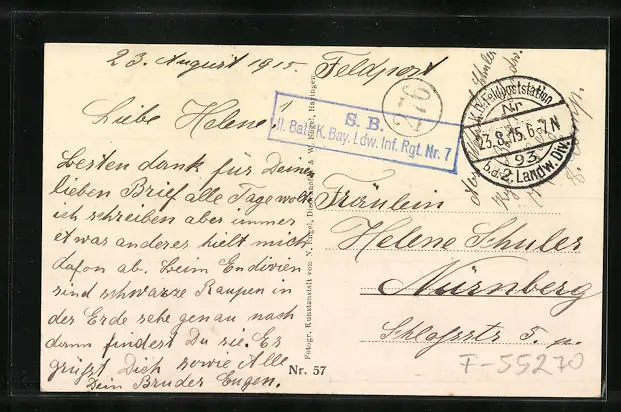 23. August 1915. Feldpost
Liebe Helene!
besten dank für Deinen
lieben Brief alle Tage wollt
ich schreiben aber immer
etwas anderes hielt mich
dafon ab. beim Endivien
sind schwarze Raupen in
der Erde sehe genau nach
dann findest Du sie. Es
grüßt Dich sowie Alle
Dein Bruder Eugen.
S. B.
II. Batl. K. Bay. Ldw. Inf. Rgt. Nr. 7
276
K. D. Feldpoststation
Nr.
23.8.15.6-7N
93
b.d. 2. Landw. Div.
Fotogr. Kunstanstalt von N. Engel, Diedenhofen & W. Engel, Hayingen.
Nr. 57
Fräulein
Helene Schuler
Nürnberg
Schlossstr 5
F-55270